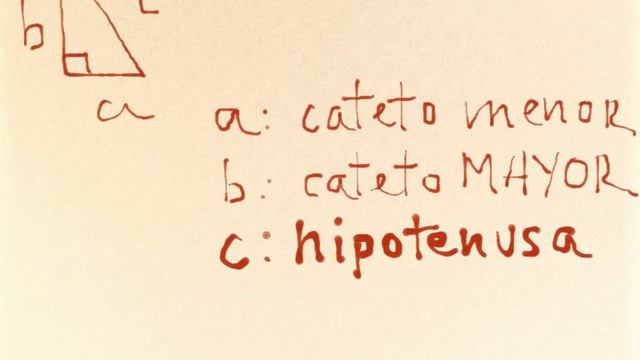 b
a
a: cateto menor
b: cateto MAYOR
c: hipotenusa